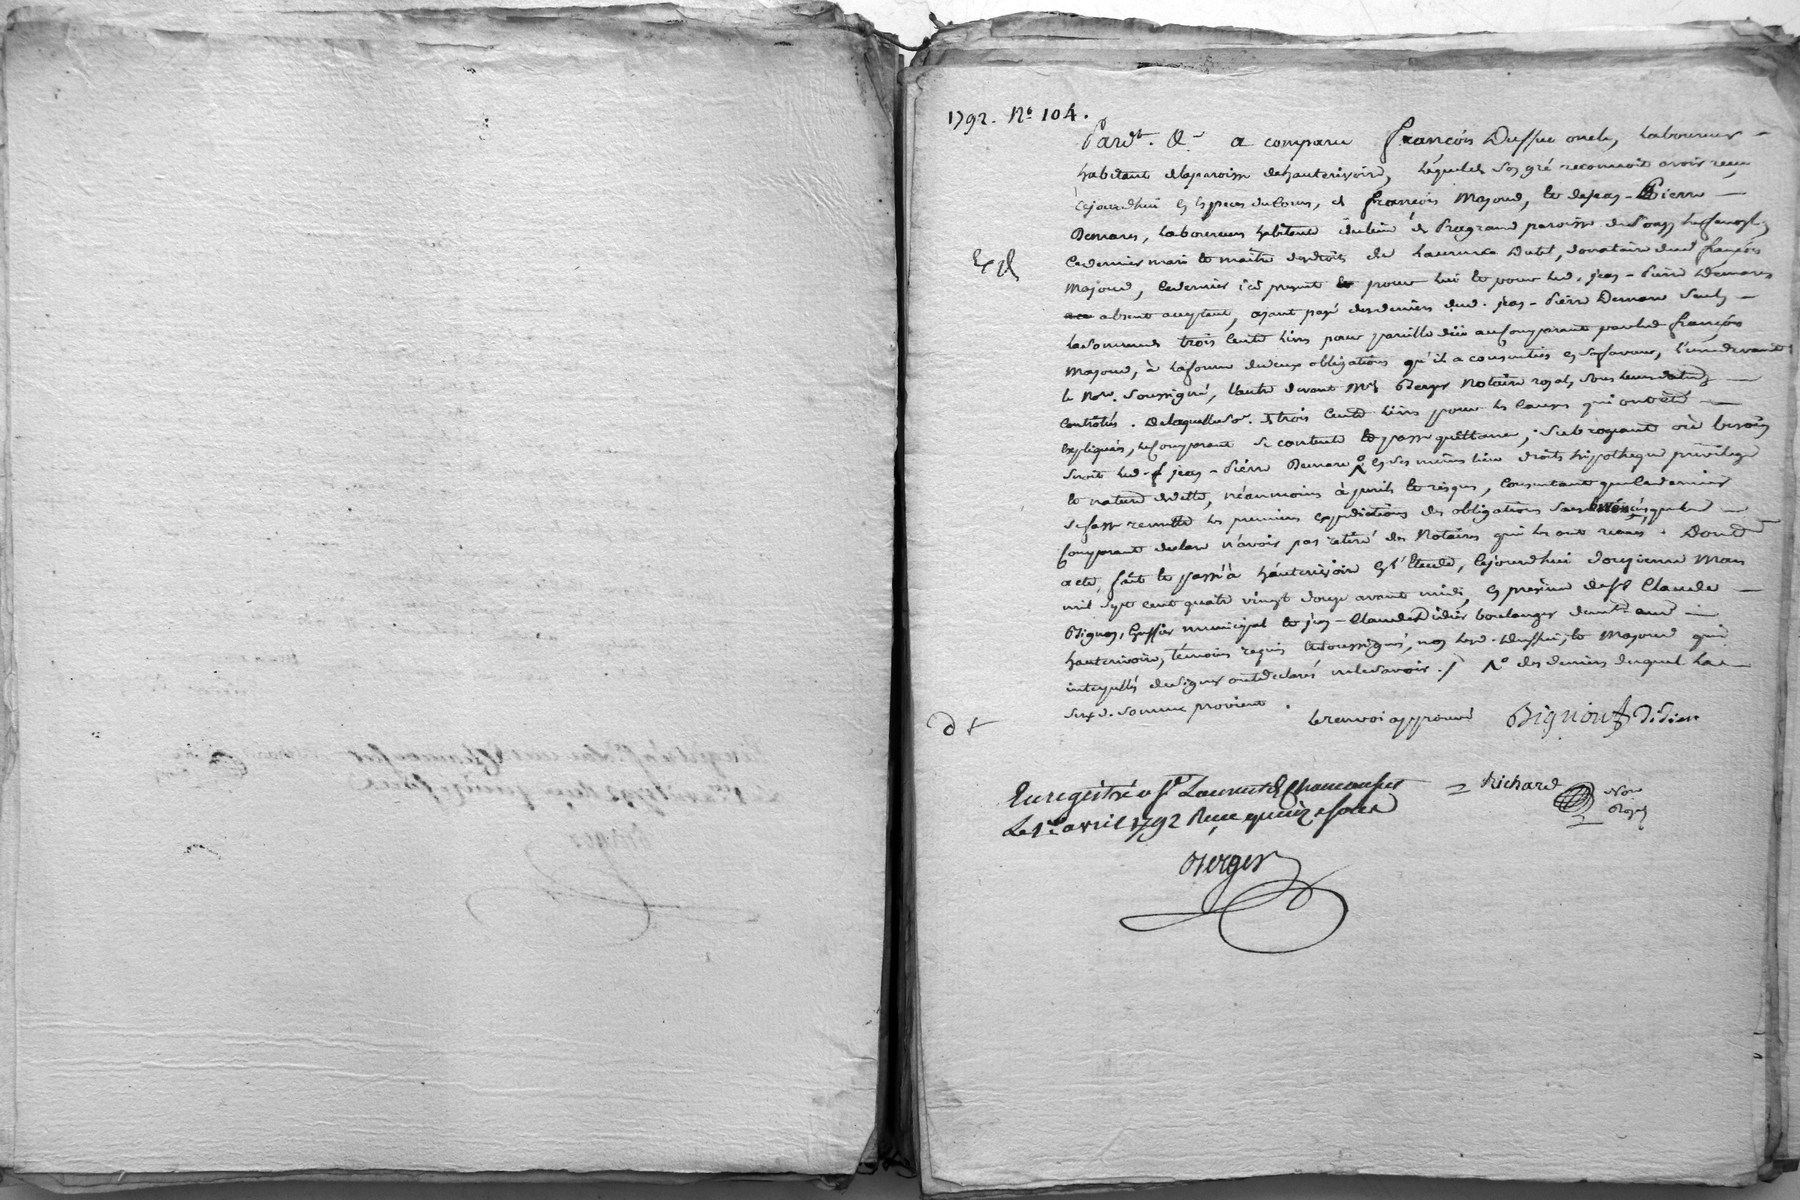 1792. No. 104.
Pardt. &. a comparu françois Dussu oncle, Laboureur
habitant de laparoisse dehauterivoire, Lequel de son gré reconnoit avoir recu
cejourdhui en especes ducours, de françois Majoud, et dejean-Pierre
Demare, Laboureurs habitants dulieu de paroisse de
Cedernier mari et maitre desdroits de Laurence donataire dud françois
Exp.d
Majoud, Cedernier ici present pour lui et pour led. jean-Pierre Demare
absent acceptant, ayant payé desdeniers dud. jean-Pierre Demare seul
lasomme de trois Cents livres pour pareille düe aucomparant parled françois
Majoud, à laforme dedeux obligations qu'il a consenties en safaveur, l'une devant
le Nore. Soussigné, l'autre devant Me Berger Notaire royal, sous leurs dattes
Contrôlés. Delaquelle so.e de trois Cents livres pour les Causes qui ont été
Expliquées, lecomparant se contente et passe quittance, subrogeant où besoin
seroit led. jean-Pierre Demare en ses mêmes lieu droits hipotheque privilege
et nature dedette, néanmoins à perils et risques, Consentant quecedernier
sefasse remettre les premieres expeditions des obligations quele
Comparant declare n'avoir pas retiré des Notaires qui les ont recues. Dont
acte, fait et passé à hauterivoire en l'Etude, cejourdhui douzieme Mars
mil sept cent quatre vingt douze avant midi, en presence desr Claude
Bignon, Greffier municipal et jean-Claude Didier boulanger demt. aud.
hauterivoire, témoins requis et soussignés, non lesd. Dussu, et Majoud qui
interpellés designer ontdeclarés nelesavoir./ des deniers duquel la
susd. somme provient.
dt
lerenvoi approuvé Bignon Didier
Richard Nore Royal
Enregistré a St Laurent de Chamousset
Le 1er avril 1792 Reçu quinze sols
Berger